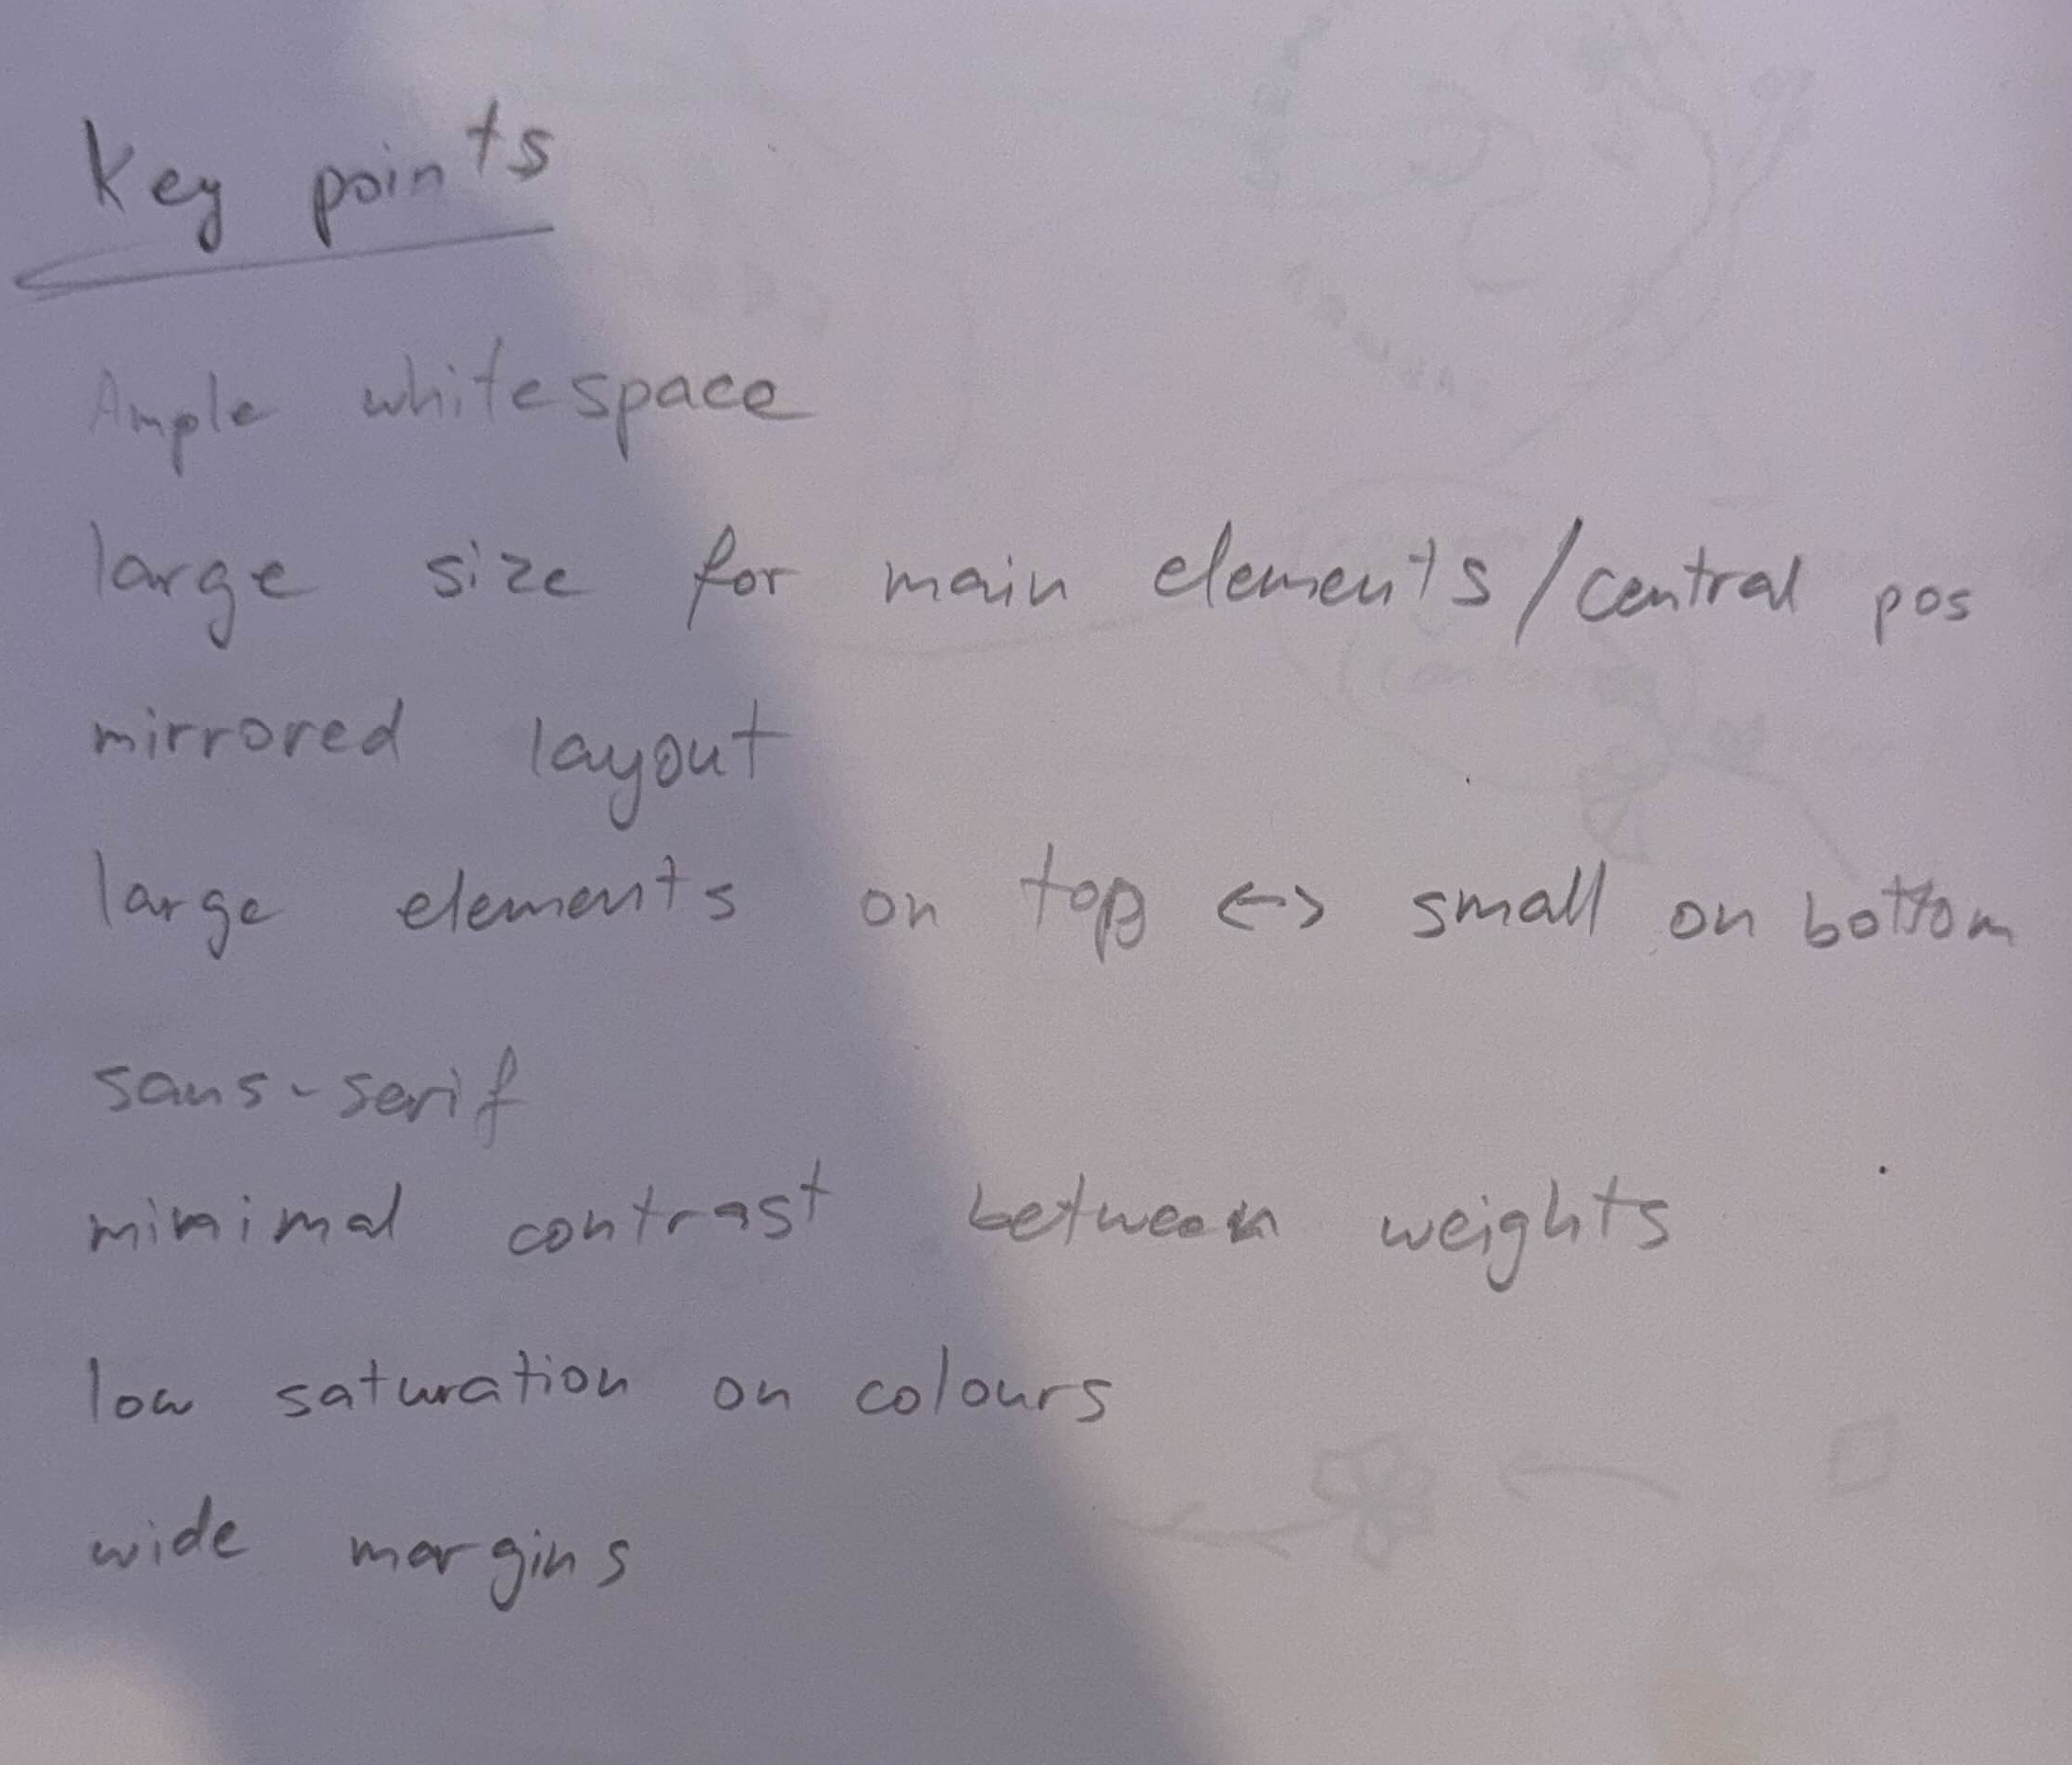 Key points
Ample whitespace
large size for main elements/central pos
mirrored layout
large elements on top <-> small on bottom
sans-serif
minimal contrast between weights
low saturation on colours
wide margins